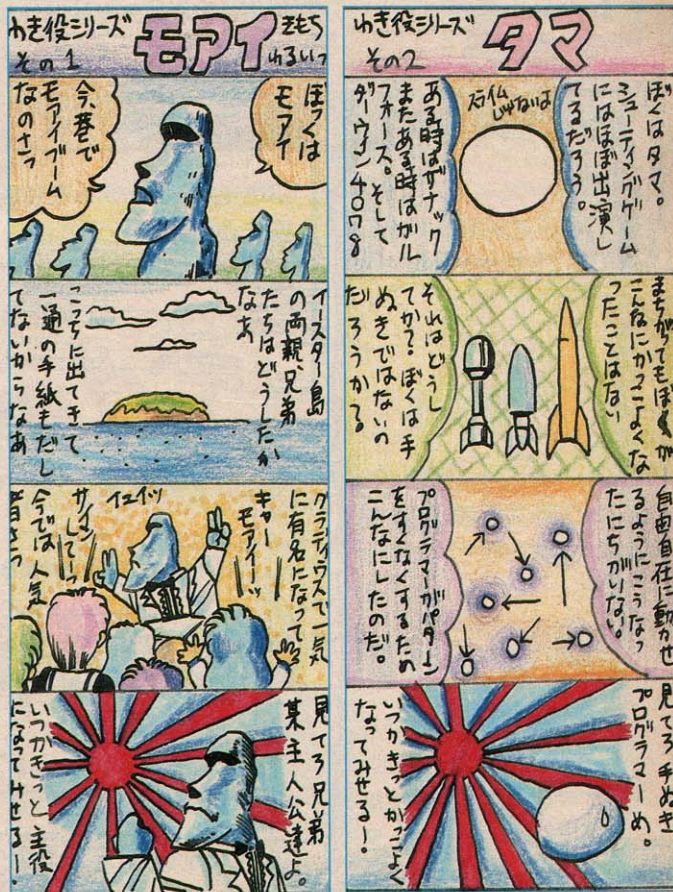 わき役シリーズ
その1
モアイ
きもち
わるいっ
ぼっくは
モアイ
今、巷で
モアイブーム
なのさっ
イースター島
の両親、兄弟
たちはどうしたか
なあ
こっちに出てきて
一通の手紙もだし
てないかっなあ
グラディウスで一気
に有名になってっ
キャー
モアイーッ
イエイッ
サイン
してーっ
今では人気
者さっ
見てろ兄弟
某主人公達よ。
いつかきっと主役
になってみせるー!
わき役シリーズ
その2
タマ
ぼくはタマ。
シューティングゲーム
にはほぼ出演し
てるだろう。
スライム
じゃないよ
ある時はザナック
またある時はガル
フォース。そして
ダーウィン4078
まちがってもぼくが
こんなにかっこよくな
ったことはない
それはどうし
てか?ぼくは手
ぬきではないの
だろうか?
自由自在に動かせ
るようにこうなっ
たにちがいない。
プログラマーがパターン
をすくなくするため
こんなにしたのだ。
見てろ手ぬき
プログラマーめ。
いつかきっとかっこよく
なってみせるー!